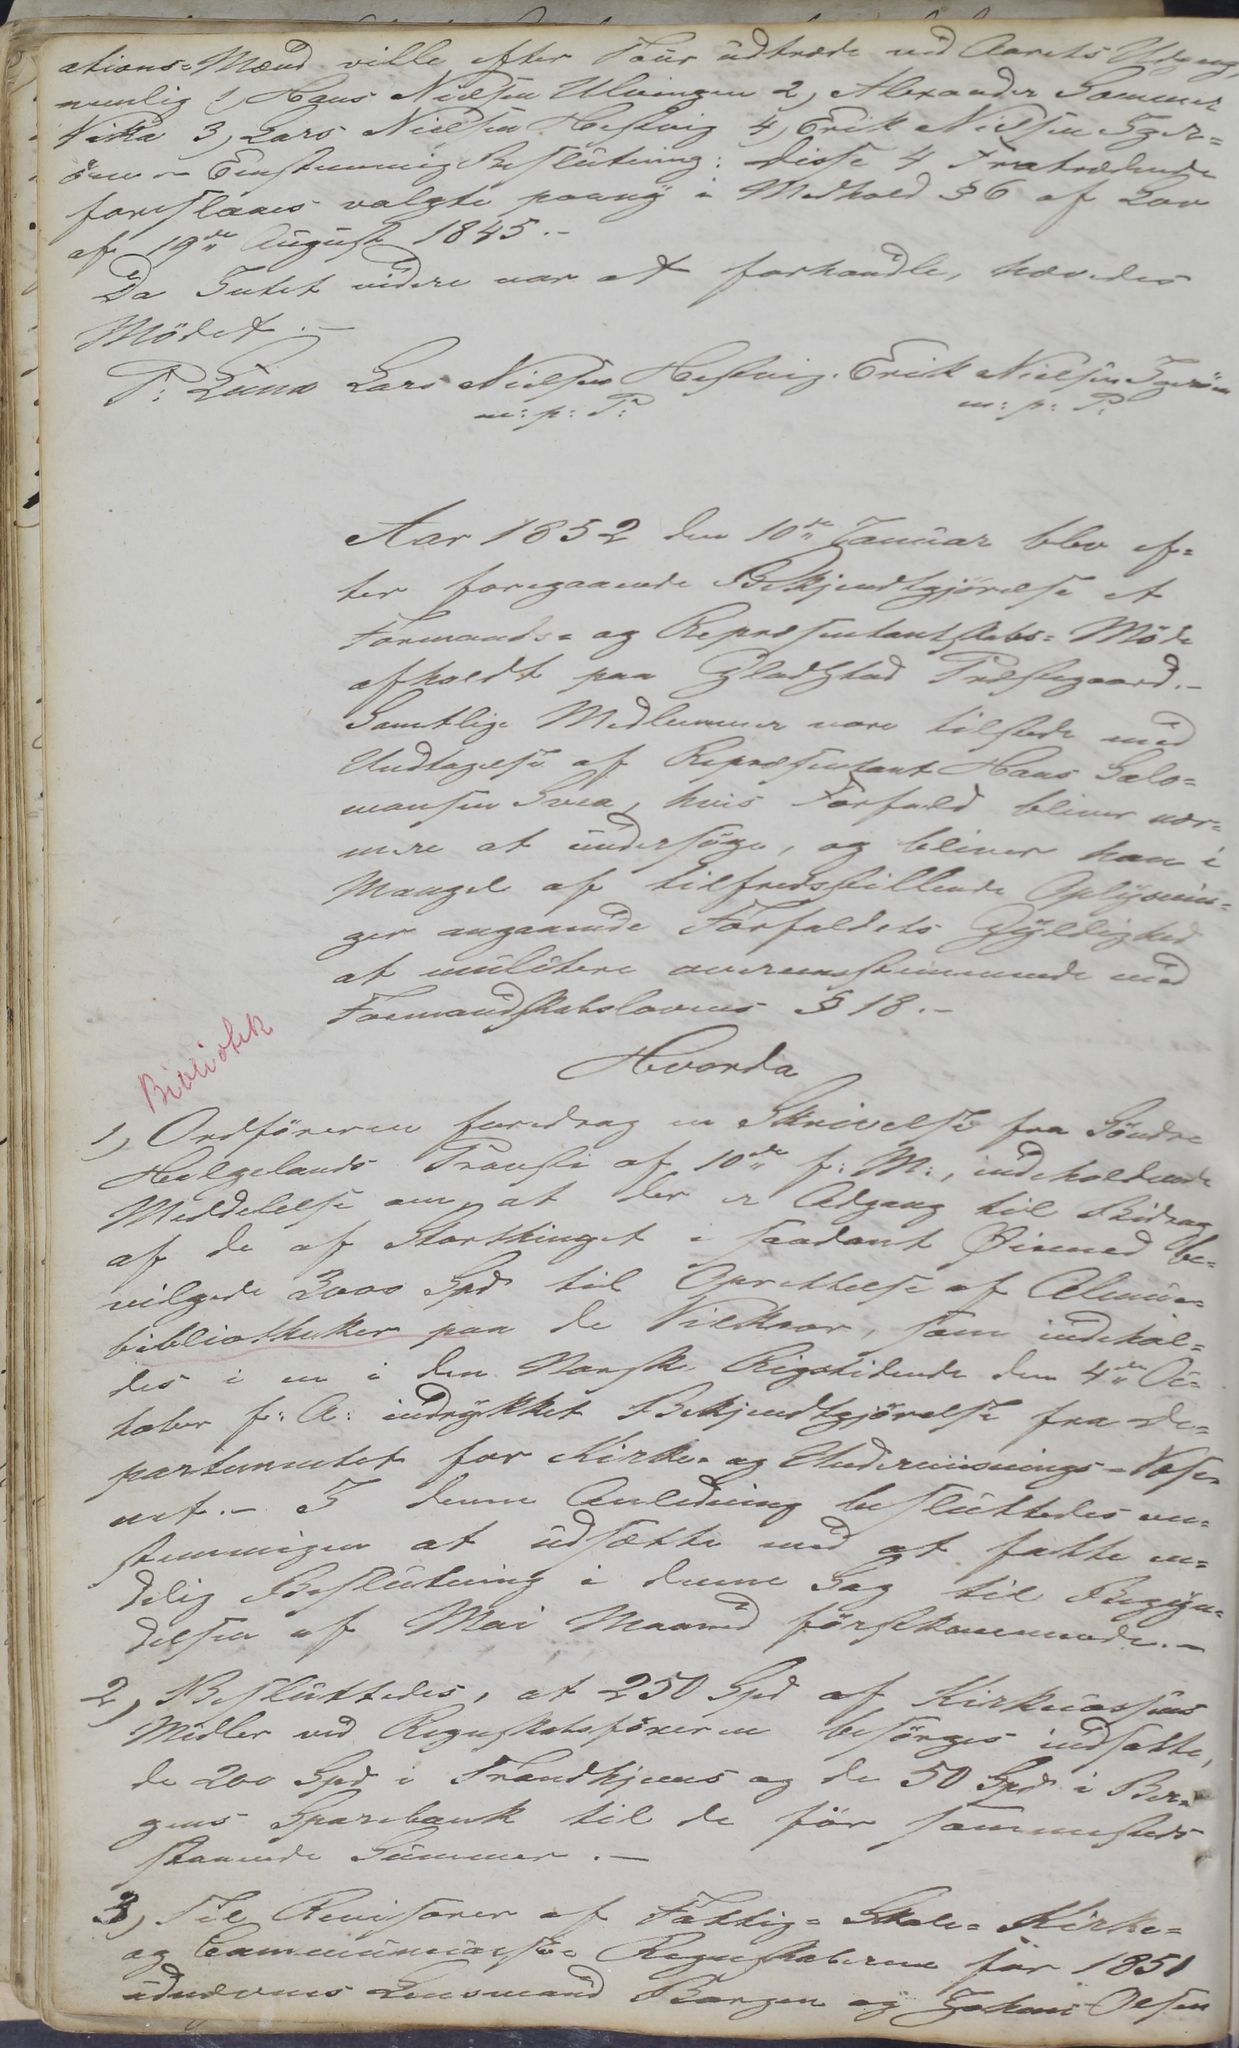 ations-Mænd ville efter Tour udtræde ved Aarets Udgang,
nemlig 1, Hans Nielsen Ulvingen 2, Alexander Sommer
Vika 3, Lars Nielsen Hestvig 4, Erik Nielsen Tger-
öen - Eenstemmig Beslutning: disse 4 Fratrædende
foreslaaes valgte paany i Medhold § 6 af Lov
af 19de August 1845.-
Da Intet videre var at forhandle, hævedes
Mödet.-
P: Lund Lars Nielsen Hestvig. Erik Nielsen
m: p: P: m: p: P:
Aar 1852 den 10de Januar blev ef-
ter foregaaende Bekjendtgjörelse et
Formands- og Repræsentantskabs-Möde
afholdt paa Gladstad Præstegaard.-
Samtlige Medlemmer vare tilstede med
Undtagelse af Repræsentant Hans Salo-
monsen Svea, hvis Forfald bliver nær-
mere at undersöge, og bliver han i
Mangel af tilfredsstillende Oplysnin-
ger angaaende Forfaldets Gyldighed
at mulctere overeensstemmende med
Formandskabslovens § 18.-
Hvorda
Bibliotek
1, Ordföreren foredrog en Skrivelse fra Söndre
Helgelands Provsti af 10de f: M:, indeholdende
Meddelelse om, at der er Adgang til Bidrag
af de af Storthinget i saadant Øiemed be-
vilgede 3000 Spd til Oprettelse af Almue-
bibliotheker paa de Vilkaar, som indehol-
des i en i den Norske Rigstidende den 4de Oc-
tober f: A: indrykket Bekjendtgjörelse fra De-
partementet for Kirke- og Underviisnings-Væse-
net.- I denne Anledning besluttedes een-
stemmigen at udsætte med at fatte en-
delig Beslutning i denne Sag til Begyn-
delsen af Mai Maaned förstkommende.-
2, Besluttedes, at 250 Spd af Kirkecassens
Midler ved Regnskabsföreren besörges indsatte,
de 200 Spd i Trondhjems og de 50 Spd i Ber-
gens Sparebank til de för sammesteds
staaende Summer.-
3, Til Revisorer af Fattig- Skole- Kirke-
og Communecasse Regnskaberne for 1851
udnævnes Lensmand Borgen og Johan Olsen